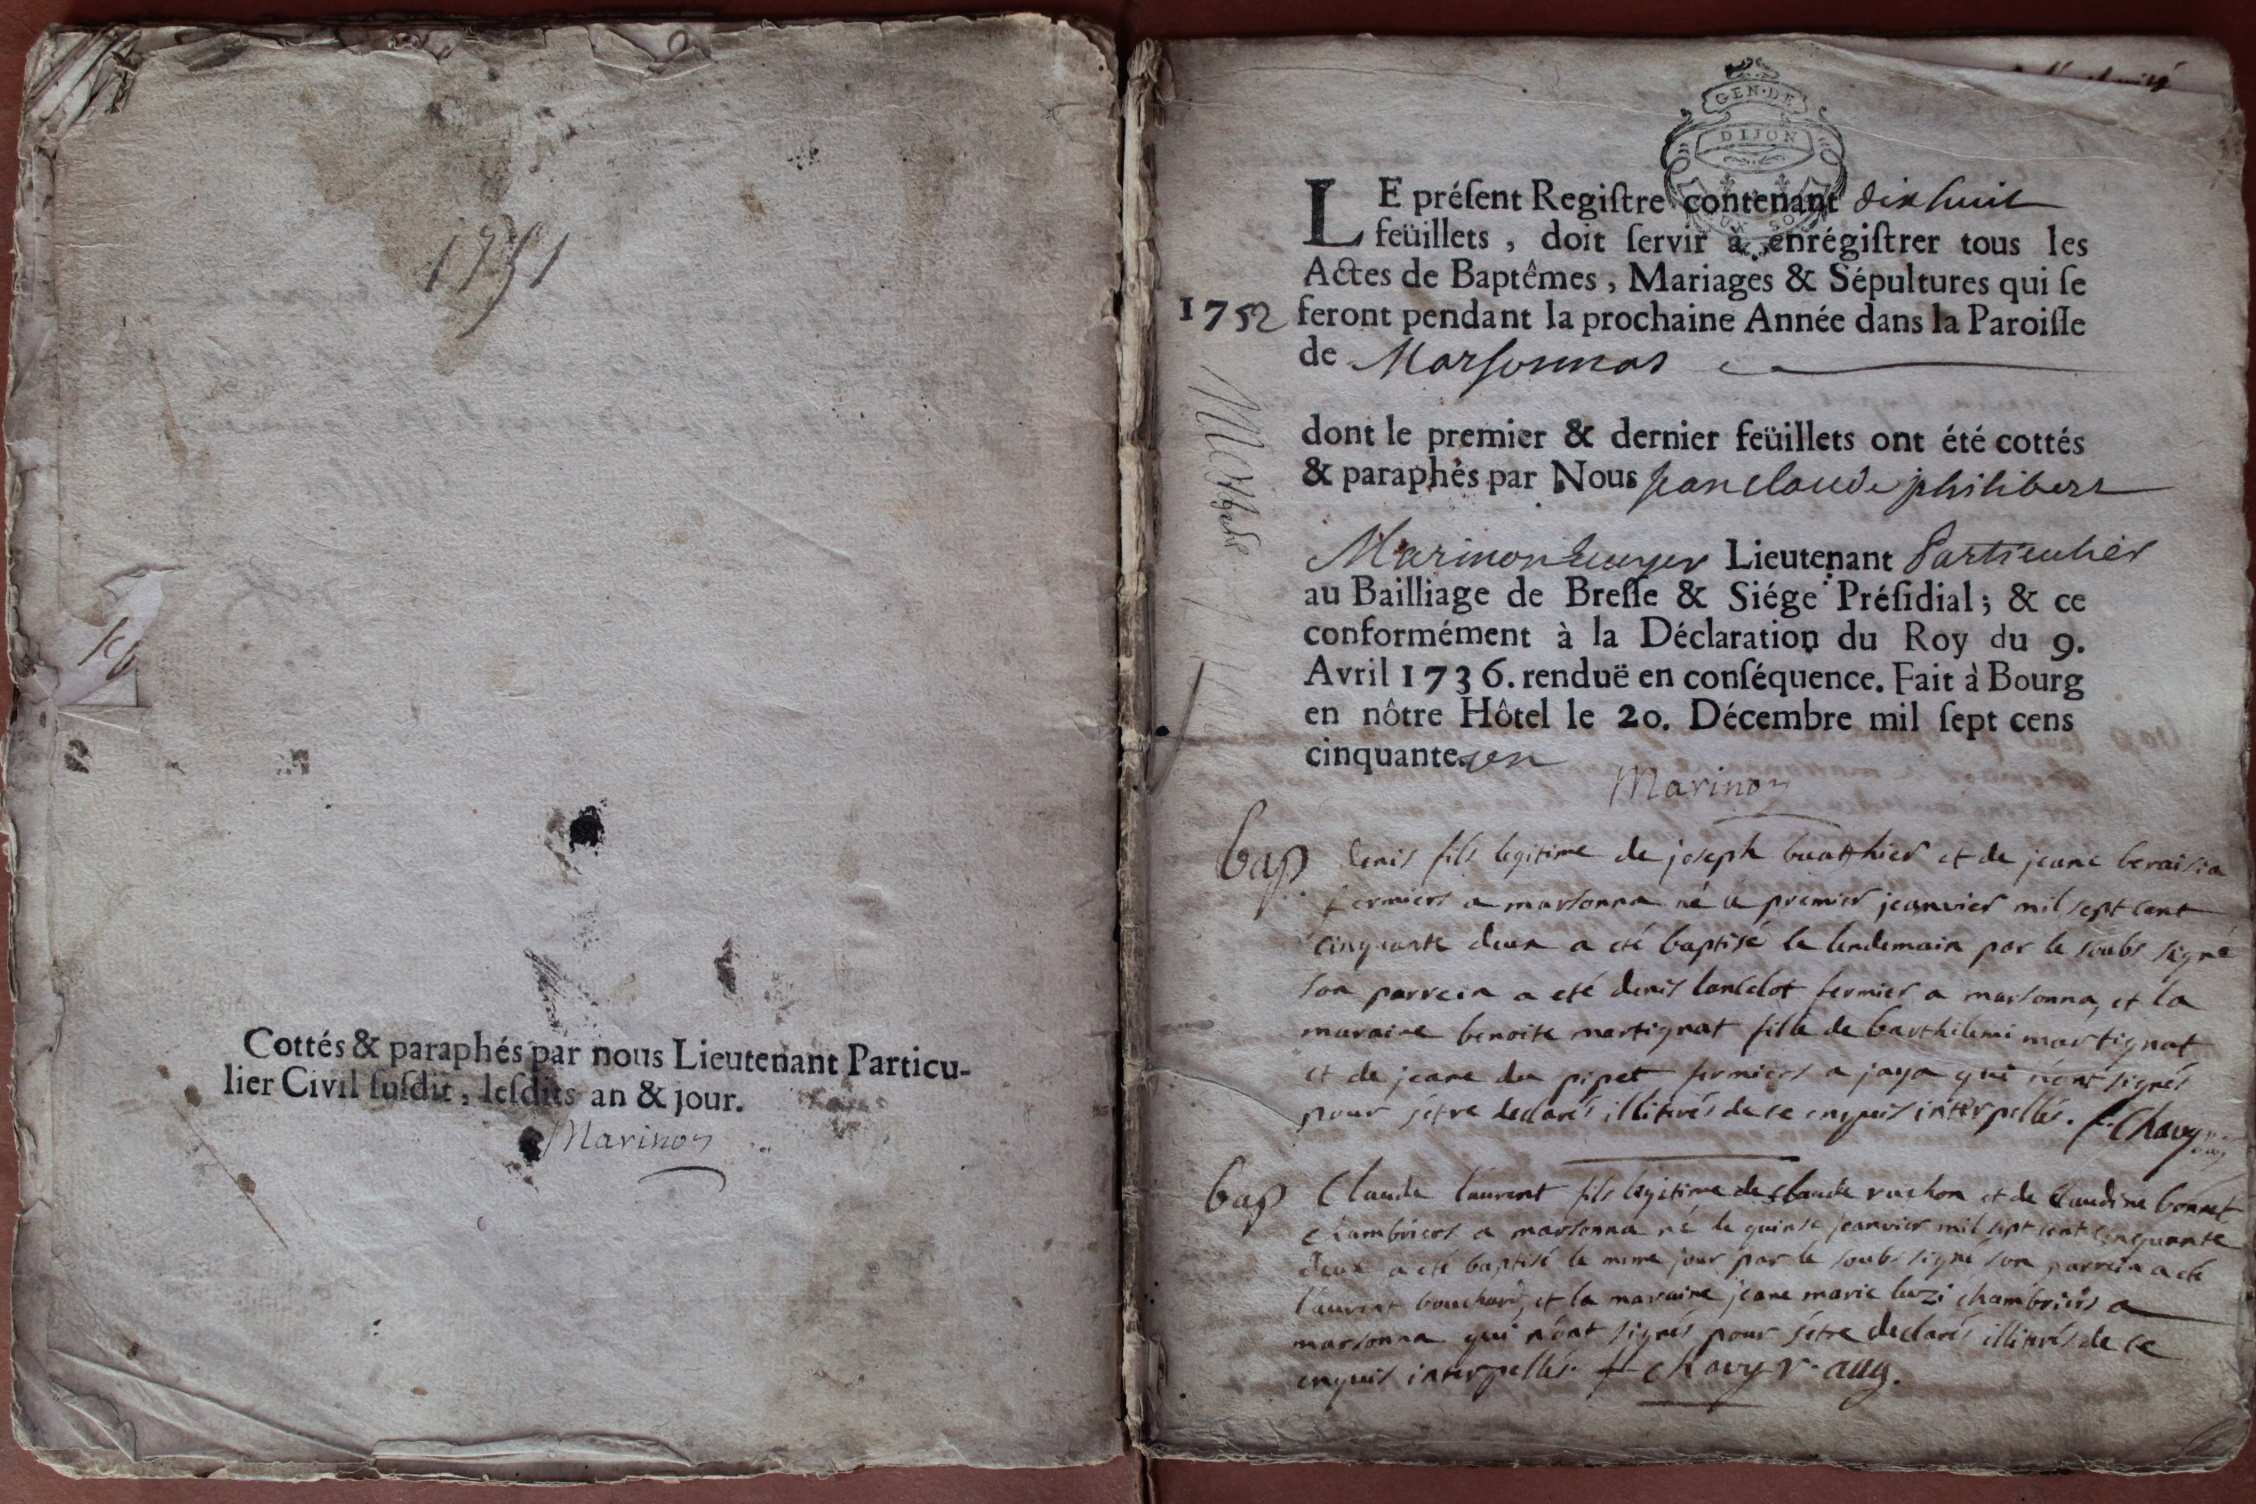 1751
Cottés & paraphés par nous Lieutenant Particu-
lier Civil ſuſdit, leſdits an & jour.
Marinon
GEN·DE
DIJON
LE préſent Regiſtre contenant dix huit
feüillets, doit ſervir à enrégiſtrer tous les
Actes de Baptêmes, Mariages & Sépultures qui ſe
1752 feront pendant la prochaine Année dans la Paroiſſe
de Marsonnas
dont le premier & dernier feüillets ont été cottés
& paraphés par Nous Jean claude philibert
Marinon Ecuyer Lieutenant Particulier
au Bailliage de Breſſe & Siége Préſidial; & ce
conformément à la Déclaration du Roy du 9.
Avril 1736. renduë en conſéquence. Fait à Bourg
en nôtre Hôtel le 20. Décembre mil ſept cens
cinquante un
Marinon
bap denis fils legitime de joseph buathier et de jeane beraisia
fermiers a marsonna né le premier jeanvier mil sept cent
cinquante deux a eté baptisé le lendemain par le soubs signé
son parrein a eté denis lancelot fermier a marsonna, et la
maraine benoite martignat fille de barthilemi martignat
et de jeane du pipet fermiers a jaya qui n'ont signés
pour s'etre declarés illiterés de ce enquis interpellés. f. Chavy
bap Claude laurent fils legitime de claude ruchon et de Claudine bonnet
chambriers a marsonna né le quinse jeanvier mil sept cent cinquante
deux a eté baptisé le meme jour par le soubs signé son parrein a eté
laurent bouchard, et la maraine jeane marie luzi chambriers a
marsonna qui n'ont signés pour s'etre declarés illiterés de ce
enquis interpellés. f. chavy r. aug.